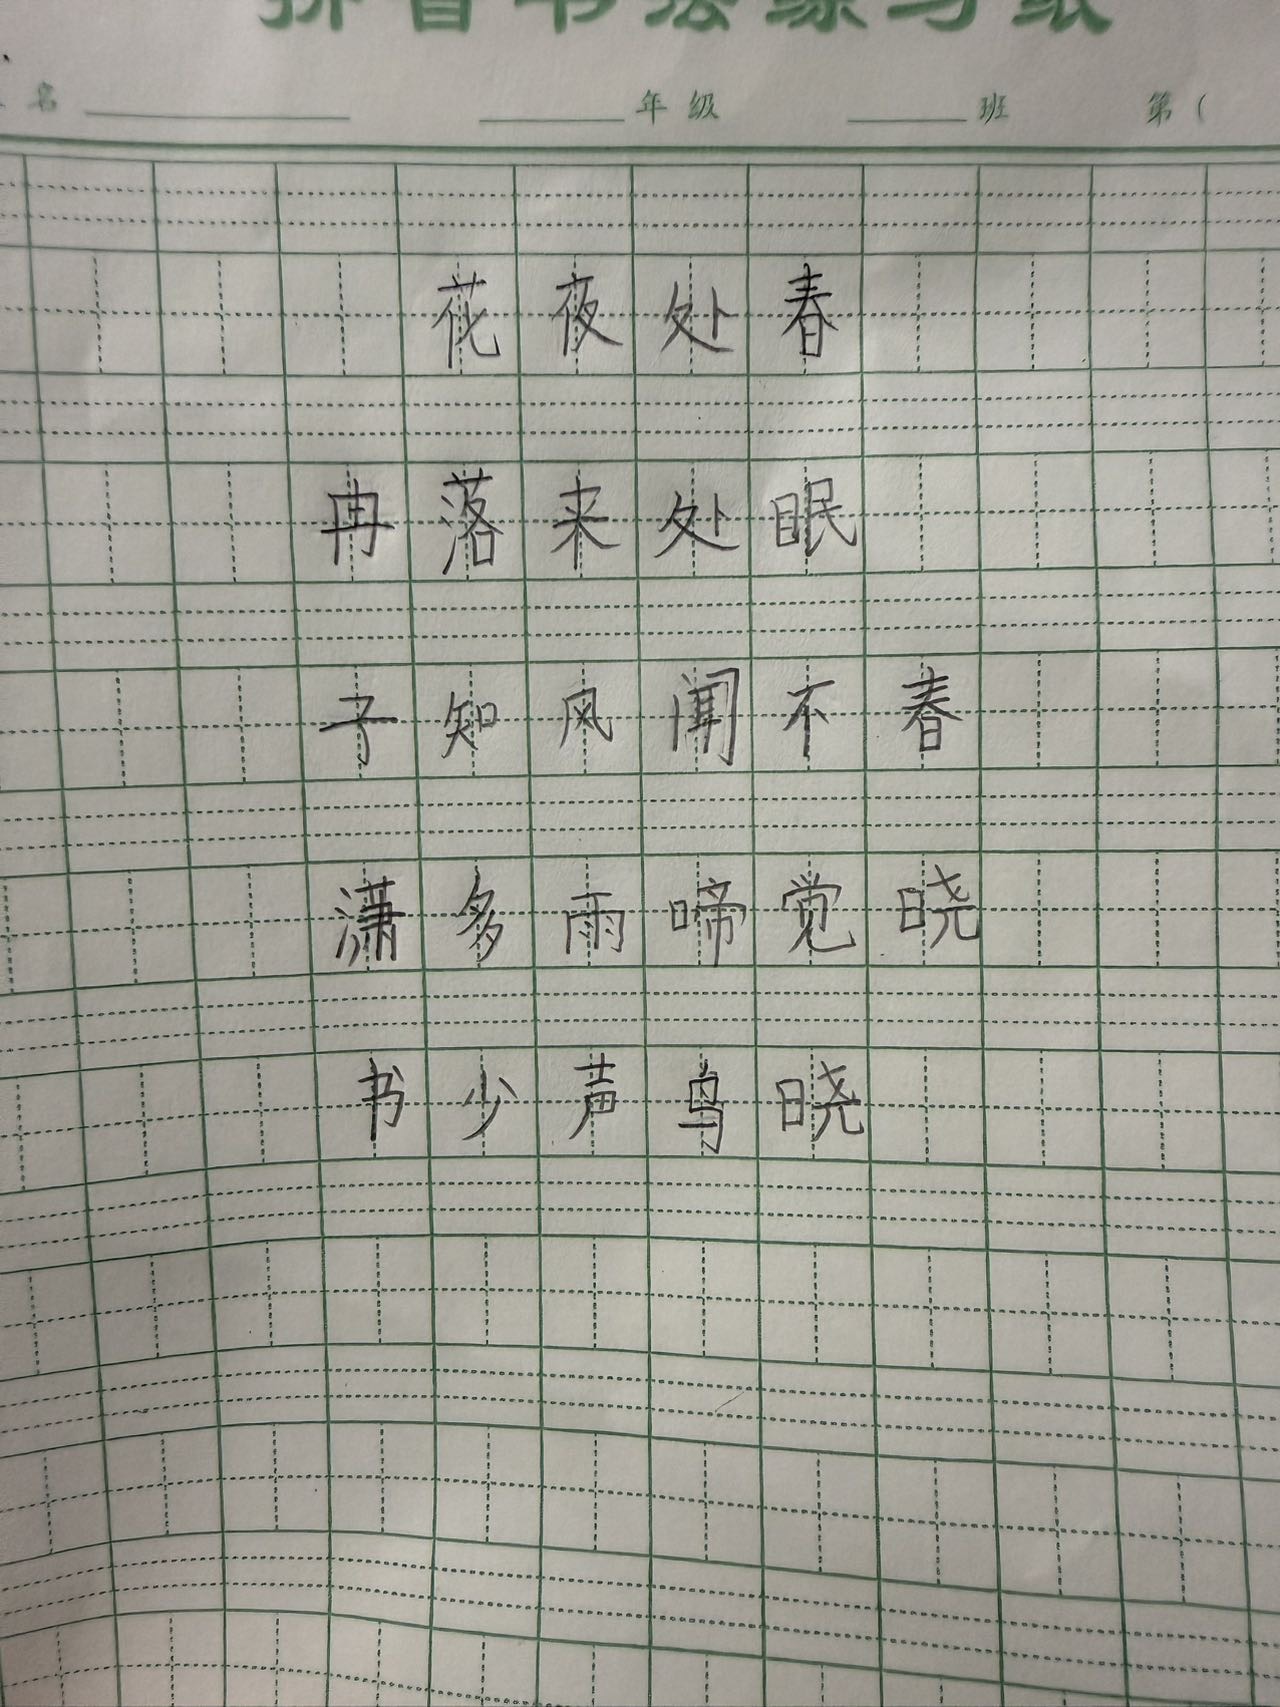 拼音书法练习纸
名 年级 班 第(
花夜处春
冉落来处眠
子知风闻不春
潇多雨啼觉晓
书少声鸟晓